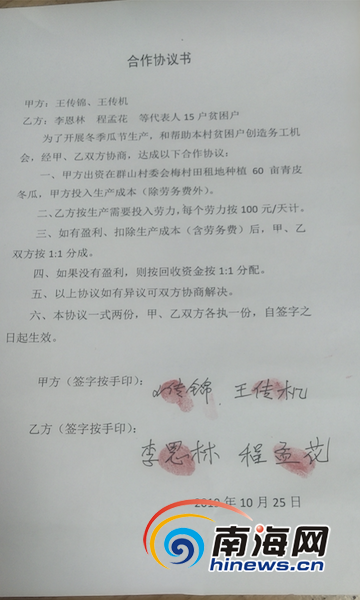 合作协议书
甲方：王传锦、王传机
乙方：李恩林 程孟花 等代表人 15 户贫困户
为了开展冬季瓜节生产，和帮助本村贫困户创造务工机
会，经甲、乙双方协商，达成以下合作协议：
一、甲方出资在群山村委会梅村田租地种植 60 亩青皮
冬瓜，甲方投入生产成本（除劳务费外）。
二、乙方按生产需要投入劳力，每个劳力按 100 元/天计。
三、如有盈利、扣除生产成本（含劳务费）后，甲、乙
双方按 1:1 分成。
四、如果没有盈利，则按回收资金按 1:1 分配。
五、以上协议如有异议可双方协商解决。
六、本协议一式两份，甲、乙双方各执一份，自签字之
日起生效。
甲方（签字按手印）： 传锦 王传机
乙方（签字按手印）：
李恩林 程孟花
年 10 月 25 日
南海网
hinews.cn